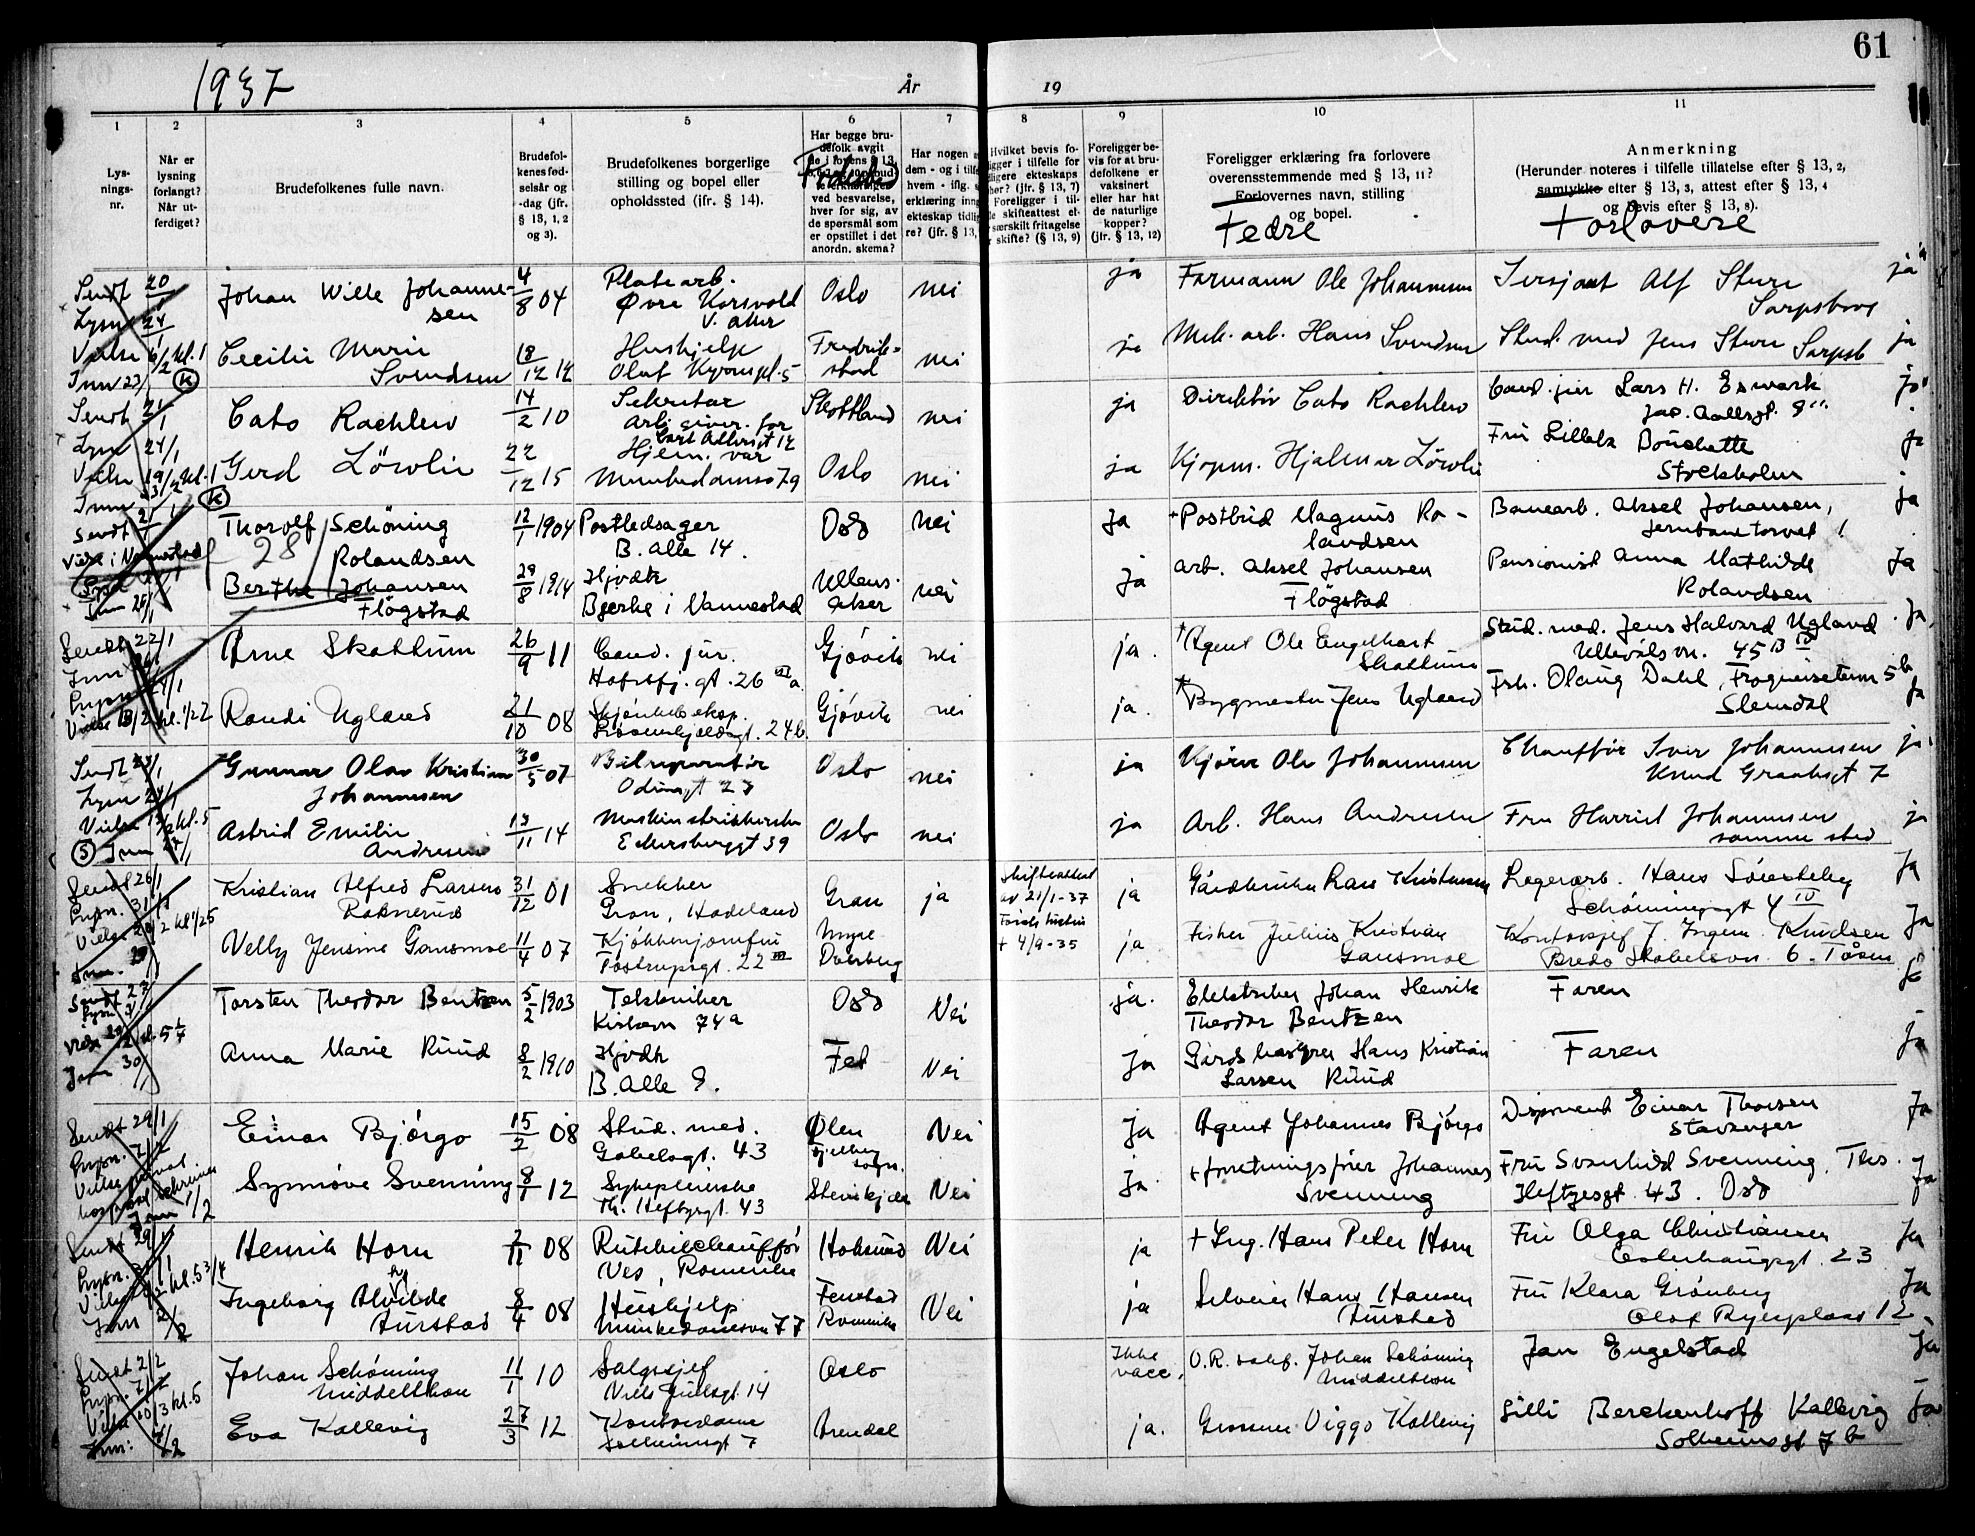 61
1937
År
19
1
2
3
4
5
6
7
8
9
10
11
Lys-
nings-
nr.
Når er
lysning
forlangt?
Når ut-
ferdiget?
Brudefolkenes fulle navn.
Brudefol-
kenes fød-
selsår og
-dag (jfr.
§ 13, 1, 2
og 3).
Brudefolkenes borgerlige
stilling og bopel eller
opholdssted (jfr. § 14).
Har begge bru-
defolk avgit
Fødested
ved besvarelse,
hver for sig, av
de spørsmål som
er opstillet i det
anordn. skema?
Har nogen
dem - og i tilf
hvem - iflg.
erklæring inng
ekteskap tidlig
re? (jfr. § 13,
Hvilket bevis fo-
ligger i tilfelle for
ligere ekteskaps
her? (jfr. § 13, 7)
Foreligger i til-
skifteattest el-
særskilt fritagelse
skifte? (§ 13, 9)
Foreligger be-
vis for at bru-
defolkene er
vaksinert
eller har hat
de naturlige
kopper?
(jfr. § 13, 12)
Foreligger erklæring fra forlovere
overensstemmende med § 13, 11?
Forlovernes navn, stilling
og bopel.
Fedre
Anmerkning
(Herunder noteres i tilfelle tillatelse efter § 13, 2,
samtykke efter § 13, 3, attest efter § 13, 4
og bevis efter § 13, 8).
Forlovere
Sendt 20/1
Lysn 24/1
Vielse 6/2 kl. 1
Inn 27/1 (K)
Johan Wille Johanne-
sen
4/8 04
Platearb.
Øvre Korsvold
V. aker
Oslo
nei
ja
Formann Ole Johannesen
Sersjant Alf Sture
Sarpsborg
ja
Cecilie Marie
Svendsen
18/12 12
Hushjelp
Olaf Kyrres pl. 5
Fredrik-
stad
nei
ja
Mek. arb. Hans Svendsen
Stud. med Jens Sture Sarpsb
ja
Sendt 21/1
Lysn 24/1
Cato Rachlew
14/2 10
Sekretær
Arb. giver. for
Skottland
nei
ja
Direktør Cato Rachlew
Cand. jur Lars H. Esmark
Jac. Aallsgt. 9
ja
Gerd Löwlie
22/12 15
Munkedamsv 79
Oslo
nei
ja
Kjøpm. Hjalmar Löwlie
Stockholm
ja
(K)
Thorolf Schöning
Rolandsen
28
12/1 1904
Postledsager
B. Alle 14.
Oslo
Nei
Ja
+ Postbud Magnus Ro-
landsen
Banearb. Aksel Johansen,
Jernbanetorvet 1
ja
Berthe Johansen
Flögstad
29/8 1914
Hjvdh
Bjerke i Nannestad
Ullens-
aker
nei
Ja
Arb. Aksel Johansen
Flögstad
Pensionist Anna Mathilde
Rolandsen
Ja
Sendt 22/1
Arne Skattum
26/9 11
Cand. jur.
Gjøvik
nei
ja.
+ Agent Ole Engelhart
Skattum
Stud. med. Jens Halvard Ugland
Ullevålsvn. 45 B IV
Ja.
Randi Ugland
21/10 08
Gjøvik
nei
ja.
+ Bygmester Jens Ugland
Frk. Olaug Dahl, Frognerseterv 5b
Slemdal
Ja
Sendt 23/1
Lysn 24/1
Vielse 13/2 kl. 5
(S)
Gunnar Olav Kristian
Johannesen
30/5 07
Bilreparatør
Odinsgt 23
Oslo
nei
ja
Kjører Ole Johannesen
Chauffør Iver Johannesen
Knud Graahsgt 7
ja
Astrid Emilie
Andresen
13/11 14
Maskinstrikkerske
Eckersbergsgt 39
Oslo
nei
ja
Arb. Hans Andresen
Fru Harriet Johannesen
samme sted
ja
Sendt 26/1
Lysn. 31/1
Kristian Alfred Larsen
Raknerud
31/12 01
Snekker
Gran, Hadeland
Gran
ja
Skifteattest
av 21/1-37
+ 4/9-35
ja
Gårdbruker Lars Kristensen
Lagerarb. Hans Söresteby
Schönningsgt 4 IV
Ja
Velly Jensine Gausmoe
11/4 07
Kjøkkenjomfru
Fostrupsgt. 22 III
Myre
Dverberg
ja.
Fisker Julius Kristian
Gausmoe
Kontorsjef J. Ingem. Knudsen
Bredo Stabelsvn. 6. Tåsen
Ja
Torsten Theodor Bentzen
5/2 1903
Tekniker
Kirkevn 74a
Oslo
Nei
ja.
Elektriker Johan Henrik
Theodor Bentzen
Faren
Ja
Anna Marie Ruud
8/2 1910
Hjvdh
B. Alle 8.
Fet
Nei
Ja
Gårdbruker Hans Kristian
Larsen Ruud
Faren
Ja
Sendt 29/1
Lysn. 7/2
Einar Bjørgo
15/2 08
Stud. med.
Gabelsgt. 43
Ølen
Fjelberg
sogn.
Nei
Ja
Agent Johannes Bjørgo
Disponent Einar Thorsen
Stavanger
Ja
Synnøve Svenning
8/1 12
Sykepleierske
Th. Heftyesgt. 43
Steinkjer
Nei
Ja.
+ forretningsfører Johannes
Svenning
Fru Svanhild Svenning, Ths.
Heftyesgt. 43. Oslo
Ja
Sendt 29/1
Henrik Horn
2/11 08
Rutebilchauffør
Nes, Romerike
Hokksund
Nei
ja
+ Ing. Hans Peter Horn
Fru Olga Christiansen
Osterhausgt. 23
Ja
Ingeborg Alvilde
Furstad
8/4 08
Hushjelp
Munkedamsvn 77
Fenstad
Romerike
Nei
ja
Selveier Hans Hansen
Furstad
Fru Klara Grønberg
Olaf Ryesplass 12
Ja
Sendt 2/2
Lysn. 7/2
Johan Schönning
Middelthon
11/1 10
Salgssjef
Niels Juelsgt. 14
Oslo
Ikke
vacc.
O.R. sakf. Johan Schöning
Middelthon
Jan Engelstad
Ja
Eva Kallevig
27/3 12
Kontordame
Solheimsgt 7
Arendal
ja.
Grosserer Viggo Kallevig
Lilli Berckenhoff Kallevig
Solheimsgt 7 b
Ja